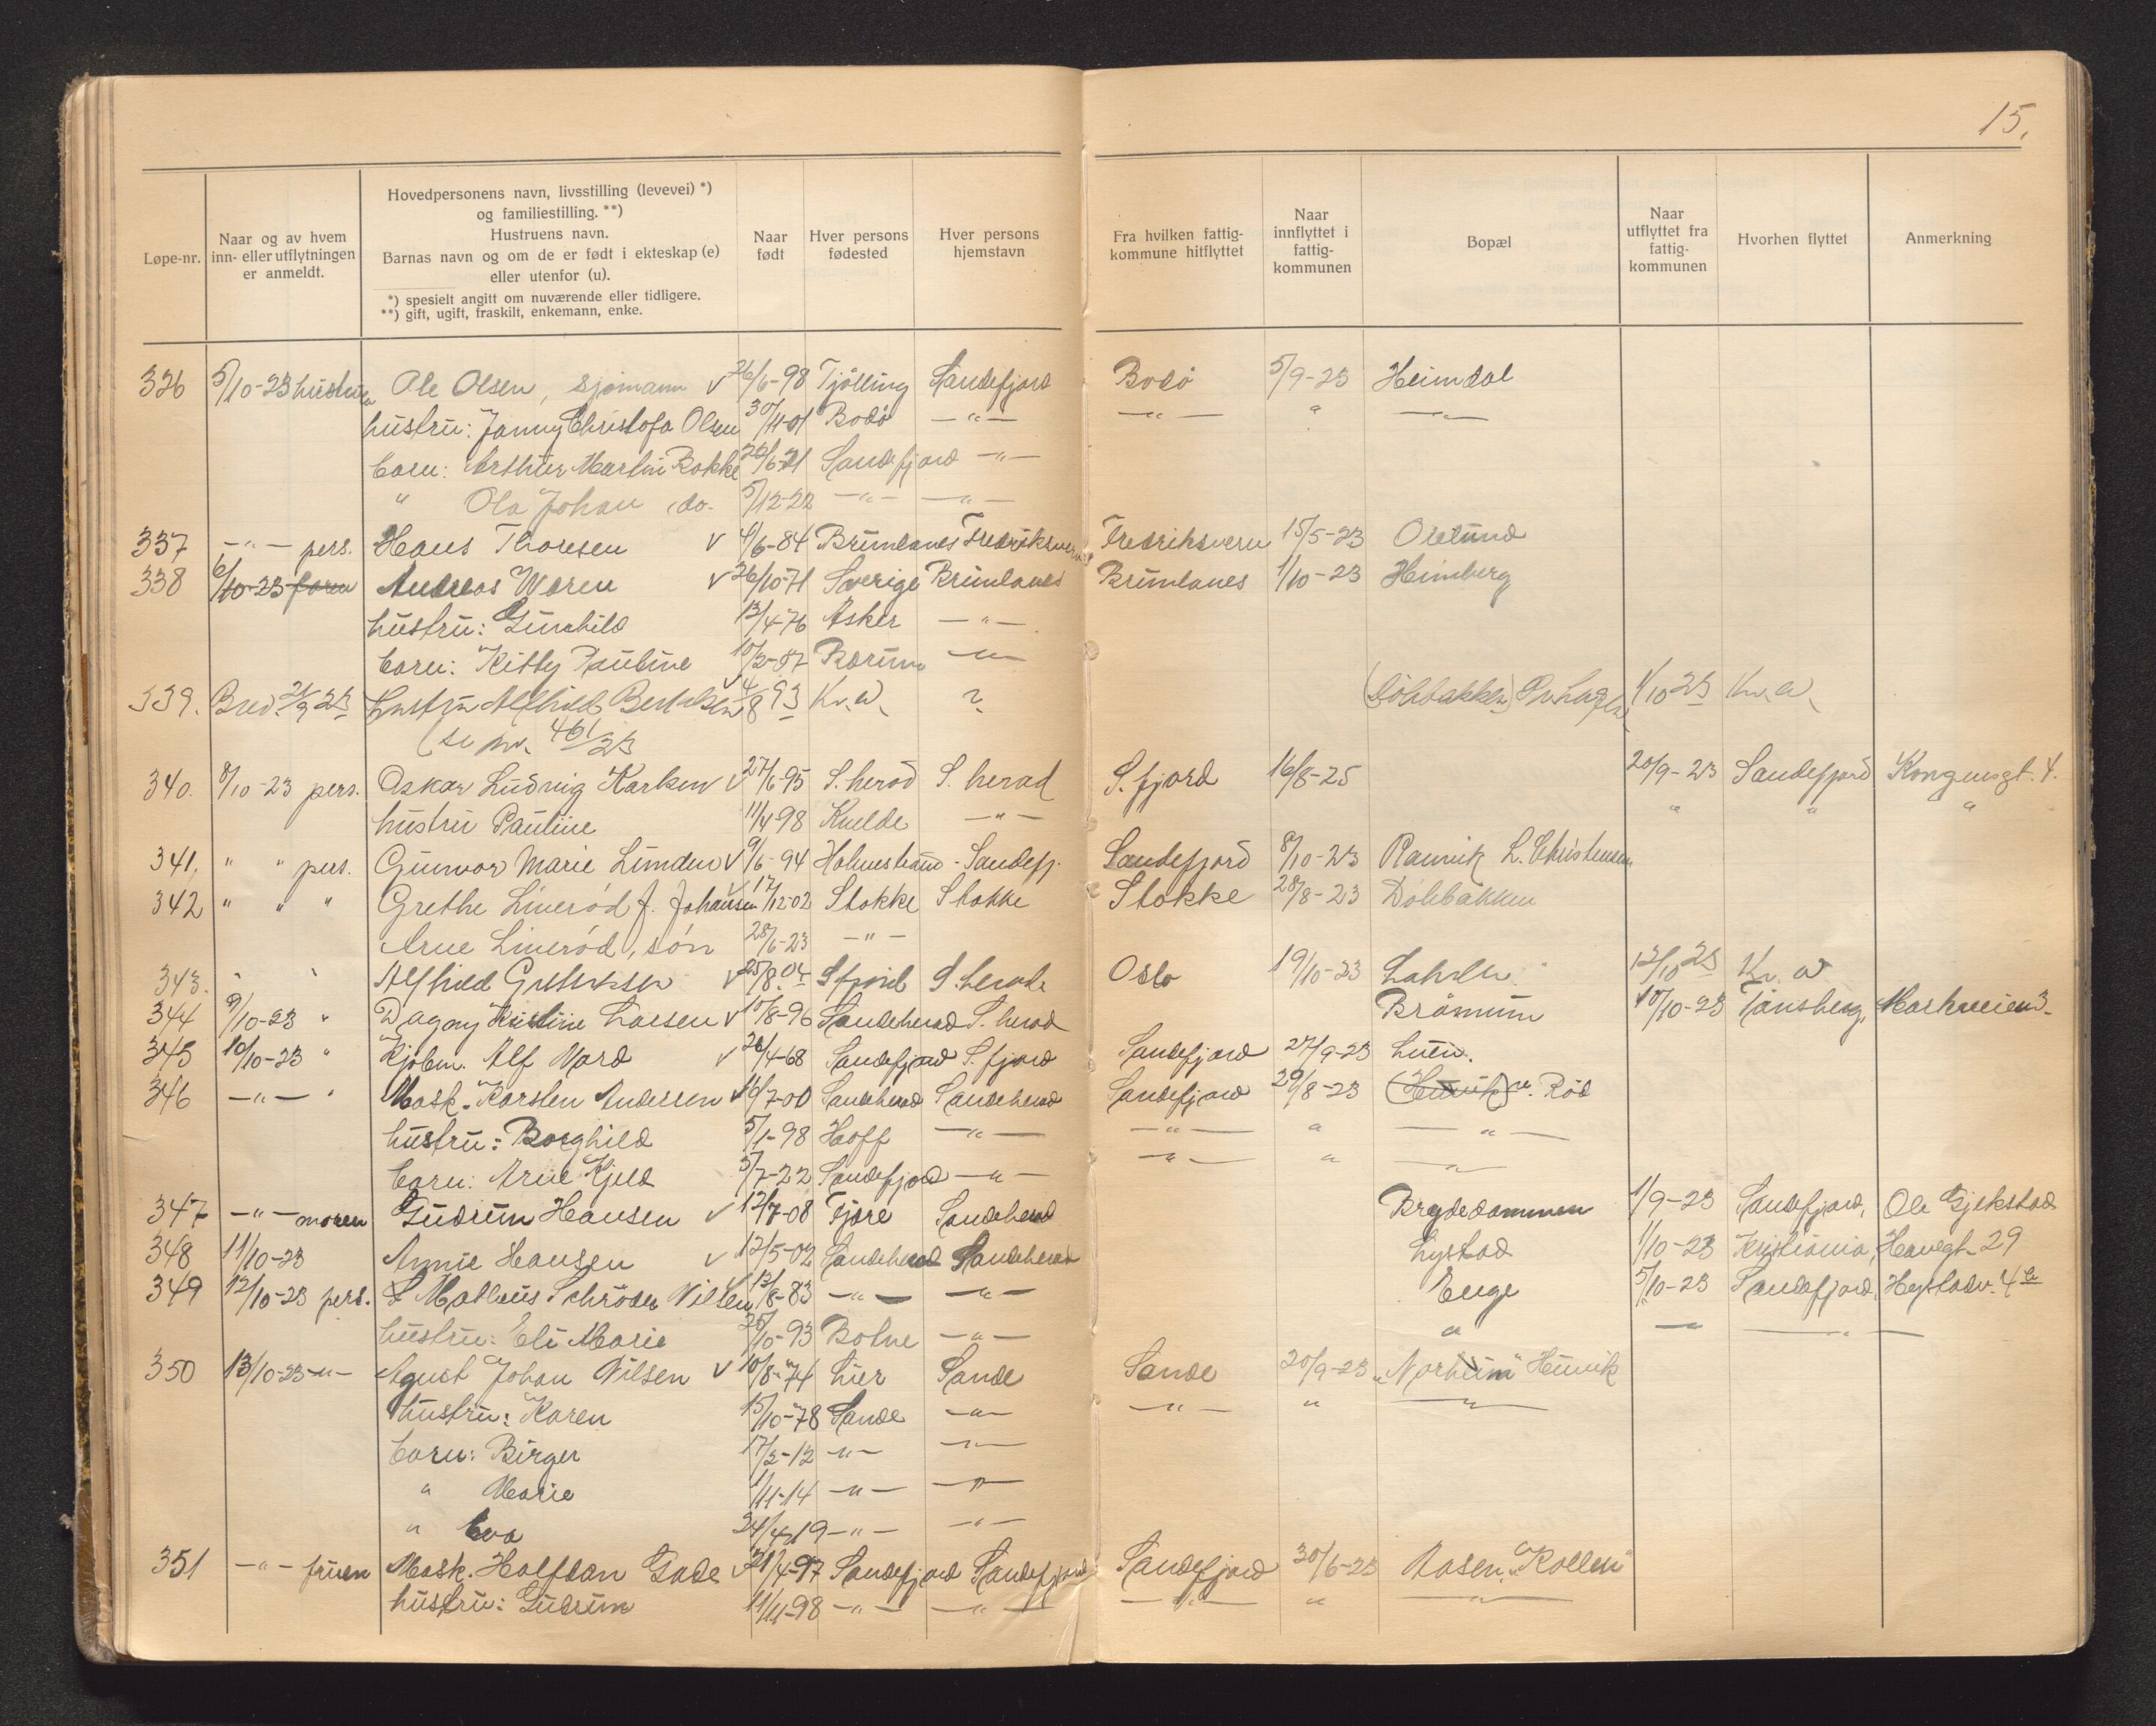 15.
Løpe-nr. | Naar og av hvem inn- eller utflytningen er anmeldt. | Hovedpersonens navn, livsstilling (levevei) *) og familiestilling. **) Hustruens navn. Barnas navn og om de er født i ekteskap (e) eller utenfor (u). *) spesielt angitt om nuværende eller tidligere. **) gift, ugift, fraskilt, enkemann, enke. | Naar født | Hver persons fødested | Hver persons hjemstavn | Fra hvilken fattig-kommune hitflyttet | Naar innflyttet i fattig-kommunen | Bopæl | Naar utflyttet fra fattig-kommunen | Hvorhen flyttet | Anmerkning
336 5/10-23 hustruen Ole Olsen, sjømann v 26/6-98 Tjølling Sandefjord Bodø 5/9-23 Heimdal
hustru: Jenny Christofa Olsen 30/11-01 Bodø —"— —"— " —"—
barn: Arthur Martin Bokke 26/6-21 Sandefjord —"—
" Ola Johan do. 5/12-22 —"— —"—
337 —"— pers. Hans Thoresen v 4/6-84 Brunlanes Fredriksvern Fredriksvern 15/5-23
338 6/10-23 faren Andreas Waren v 26/10-71 Sverige Brunlanes Brunlanes 1/10-23 Heimberg
hustru: Gunhild 13/4-76 Asker —"—
barn: Kitty Pauline Bærum —"—
339. 21/9 23 Hustru Alfhild v 4/8 93 Kr.a. ? (Dölebakken) 1/10 23 Kr.a.
(se nr. 461/23
340. 8/10-23 pers. Oskar Ludvig Karlsen v 27/6-95 S.herad S.herad S.fjord 16/8-25 20/9-23 Sandefjord Kongensgt. 4.
hustru Pauline 11/4-98 —"— " " "
341, " " pers. Gunvor Marie Lunden v 9/6-94 Holmestrand - Sandefj. Sandefjord 8/10-23 Ranvik L. Christensen
342 " " " Grethe Linerød f. Johansen v 17/12-02 Stokke Stokke Stokke 28/8-23 Dölebakken
Arne Linerød, søn 28/6-23 —"—
343. " " Alfhild v 25/8.04 Sfjord S.herad Oslo 19/10-23 12/10 23 Kr.a
344 9/10-23 " Dagny Kristine Larsen v 10/8-96 Sandeherad S.herad Bråmum 10/10-23 Tønsberg, Markveien 3.
345 10/10-23 " Kjøbm. Alf Nord v 26/4-68 Sandefjord S.fjord Sandefjord 27/9-23
346 —"— " Mask. Karsten Andersen v 16/7-00 Sandeherad Sandeherad Sandefjord 29/8-23 (Hunvik) n. Röd
hustru: Borghild 5/1-98 Hoff —"— —"— " —"—
barn: Arne Kjeld 5/7-22 Sandefjord —"— —"— " —"—
347 —"— moren Gudrun Hansen v 12/7-08 Fjære Sandeherad Brydedammen 1/9-23 Sandefjord, Ole Gjekstad
348 11/10-23 Annie Hansen v 12/5-02 Sandeherad Sandeherad Lystad 1/10-23 Kristiania, Havegt. 29
349 12/10-23 pers. Mathæus Schrøder Nilsen v 12/8-83 —"— —"— Enge 5/10-23 Sandefjord, Hegstadv. 4
hustru: Eli Marie 25/10-93 Botne —"— " —"— —"—
350 13/10-23 —"— Agust Johan Nilsen v 10/8-74 Lier Sande Sande 20/9-23 "Norheim" Hunvik
hustru: Karen 15/10-78 Sande —"— —"— " —"—
barn: Birger 17/2-12 —"— —"—
" Marie 1/11-14 —"— —"—
" Eva 24/4-19 —"— —"—
351 —"— fruen Mask. Halfdan Gade v 21/4-97 Sandefjord Sandefjord Sandefjord 30/6-23 Åsen, "Kollen"
hustru: Gudrun 11/11-98 —"— —"— —"— " —"—